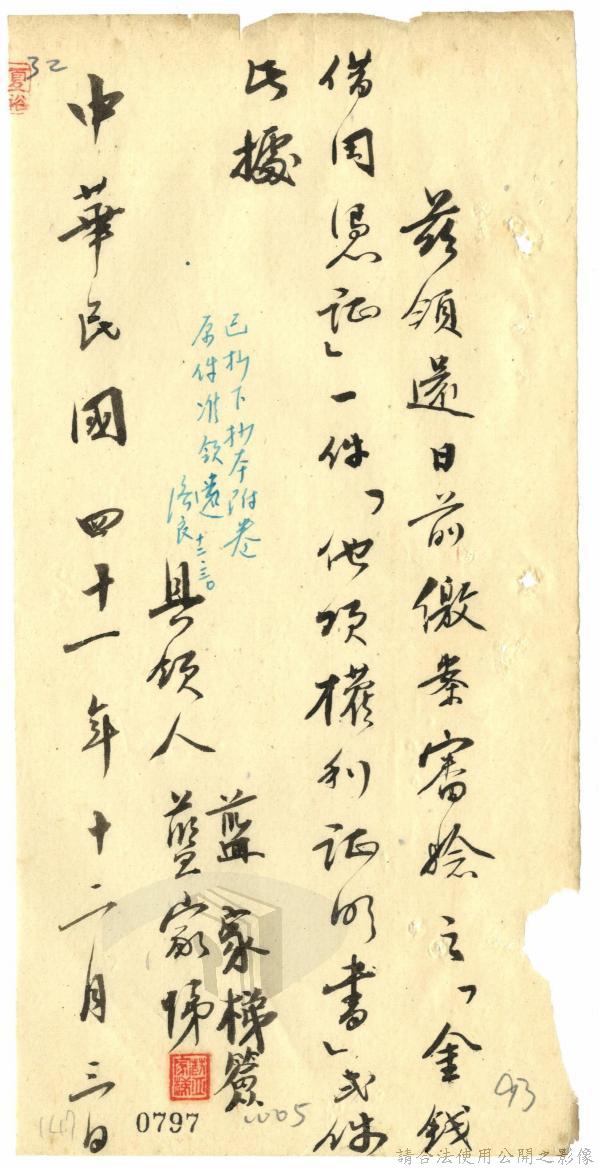 茲領還日前繳案審驗之「金錢
借用憑証」一件「他項權利証明書」弍件
此據
已抄下抄本附卷
原件准領還
十二、三。
具領人
藍家悌
藍家梯簽
中華民國四十一年十二月三日
32
93
0797
147
請合法使用公開之影像